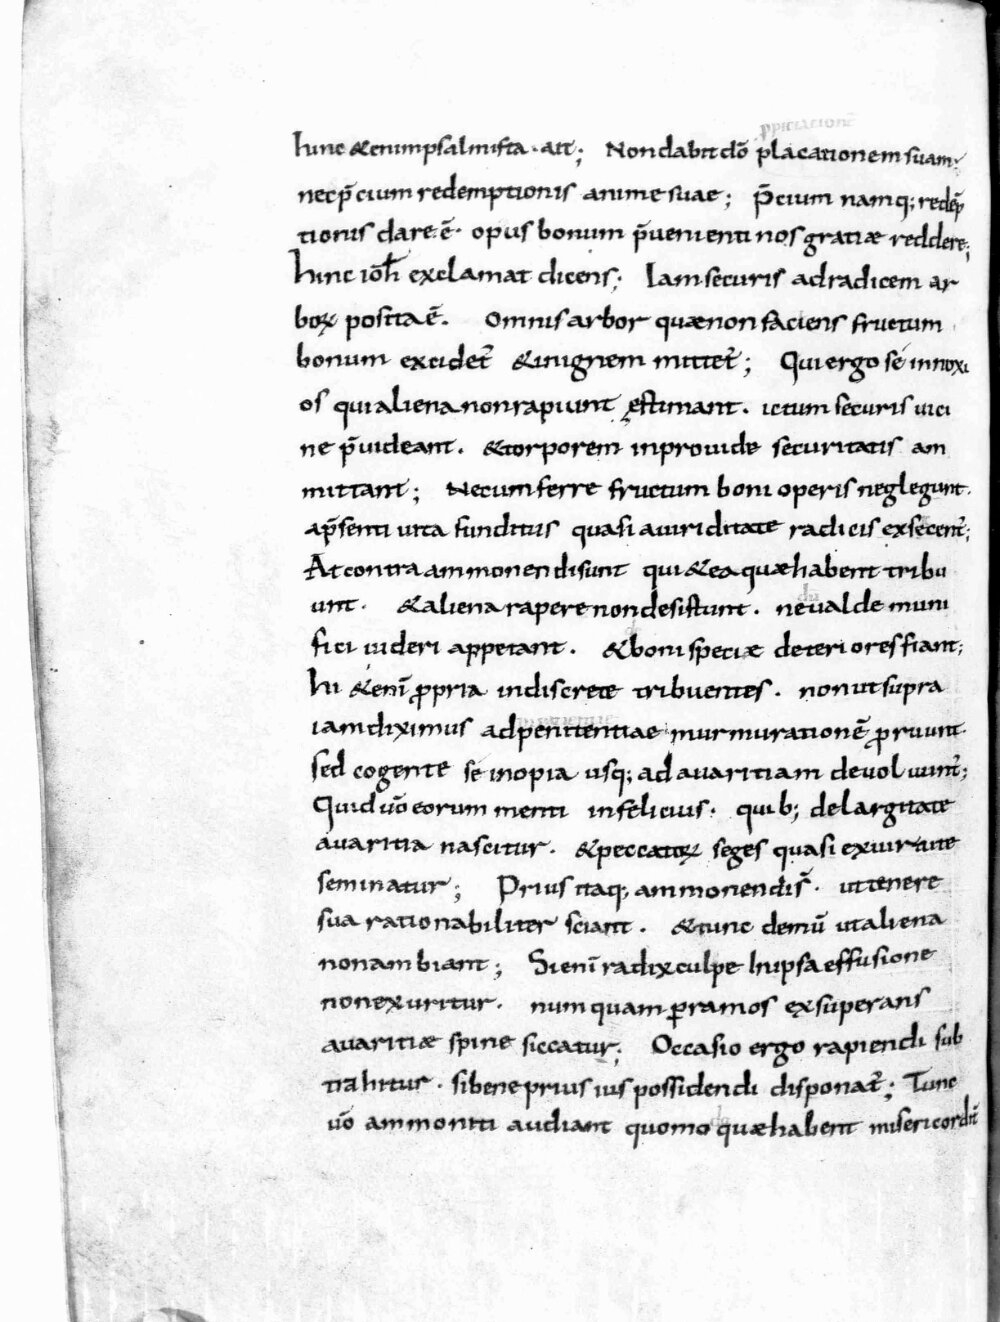 ppiciacionē
hinc &enim psalmista · ait; Non dabit dō placationem suam;
nec p̄cium redemptionis anime suae; P̄cium namq; redēp
tionis dare ē· opus bonum p̄uenienti nos gratiæ reddere;
hinc ioħ exclamat dicens; Iam securis ad radicem ar
boꝝ posita ē. Omnis arbor quæ non faciens fructum
bonum excidet̃ & in ignem mittet̃; Qui ergo se innoxi
os qui aliena non rapiunt ęstimant. ictum securis uici
ne p̄uideant. & torporem inprouide securitatis am
mittant; Ne cum ferre fructum boni operis neglegunt.
a p̄senti uita funditus quasi a uiriditate radicis exsecent̃;
At contra ammonendi sunt qui & ea quæ habent tribu
unt. & aliena rapere non desistunt. ne ualde muni
fici uideri appetant. & boni speciæ deteriores fiant;
hi &enī ꝓpria indiscrete tribuentes. non ut supra
iam diximus ad penitentiae murmurationē ꝓruunt.
sed cogente se inopia usq; ad auaritiam deuoluunt̃;
Quid ūo eorum menti infelicius. quib; de largitate
auaritia nascitur. & peccatoꝝ seges quasi ex uirtute
seminatur; Prius itaq; ammonendi s̄. ut tenere
sua rationabiliter sciant. & tunc demū ut aliena
non ambiant; Si enī radix culpe In ipsa effusione
non exuritur. numquam ꝑ ramos exsuperans
auaritiæ spine siccatur; Occasio ergo rapiendi sub
trahitur. si bene prius ius possidendi disponat̃; Tunc
ūo ammoniti audiant quomo quæ habent misericordit̃